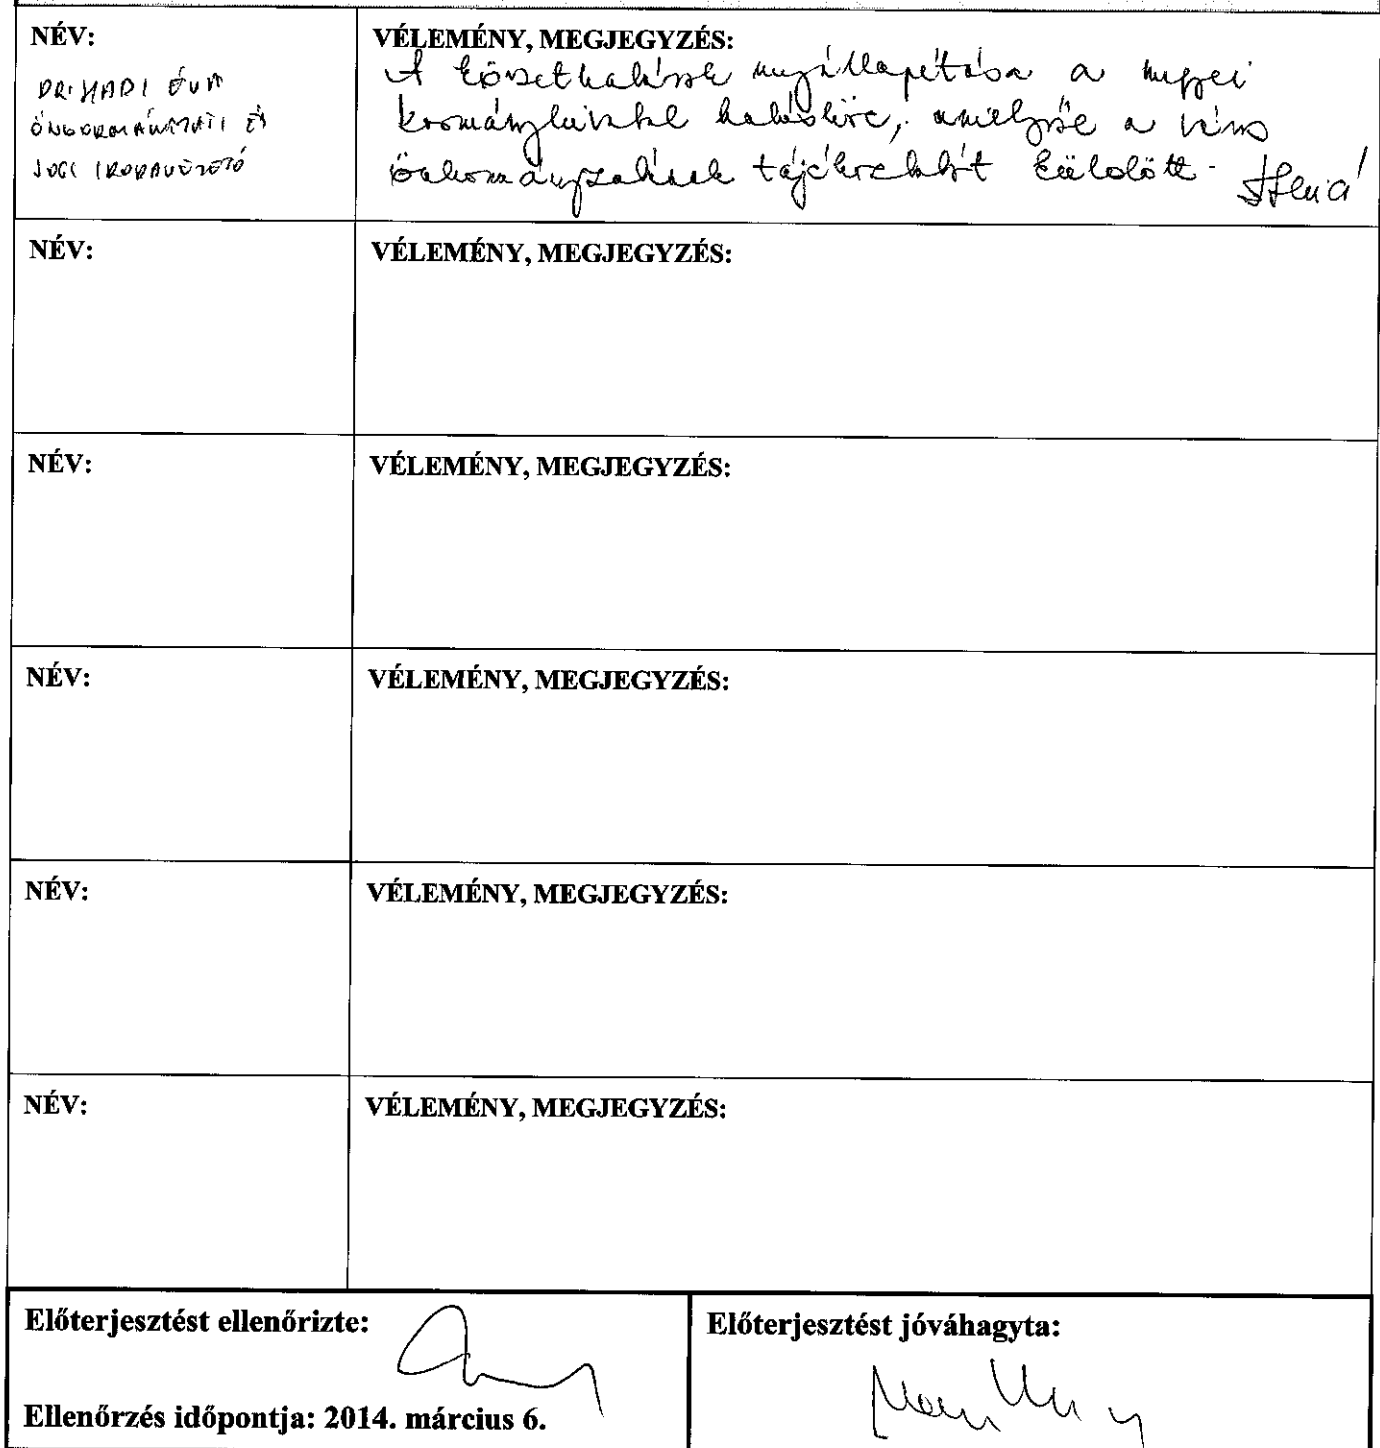 NÉV:
DR. HADI ÉVA
ÖNKORMÁNYZATI ÉS
JOGI IRODAVEZETŐ
VÉLEMÉNY, MEGJEGYZÉS:
A körzethatárok megállapítása a megyei
kormányhivatal hatásköre, amelyről a város
önkormányzatának tájékoztatót küldött.
NÉV:
VÉLEMÉNY, MEGJEGYZÉS:
NÉV:
VÉLEMÉNY, MEGJEGYZÉS:
NÉV:
VÉLEMÉNY, MEGJEGYZÉS:
NÉV:
VÉLEMÉNY, MEGJEGYZÉS:
NÉV:
VÉLEMÉNY, MEGJEGYZÉS:
Előterjesztést ellenőrizte:
Ellenőrzés időpontja: 2014. március 6.
Előterjesztést jóváhagyta: